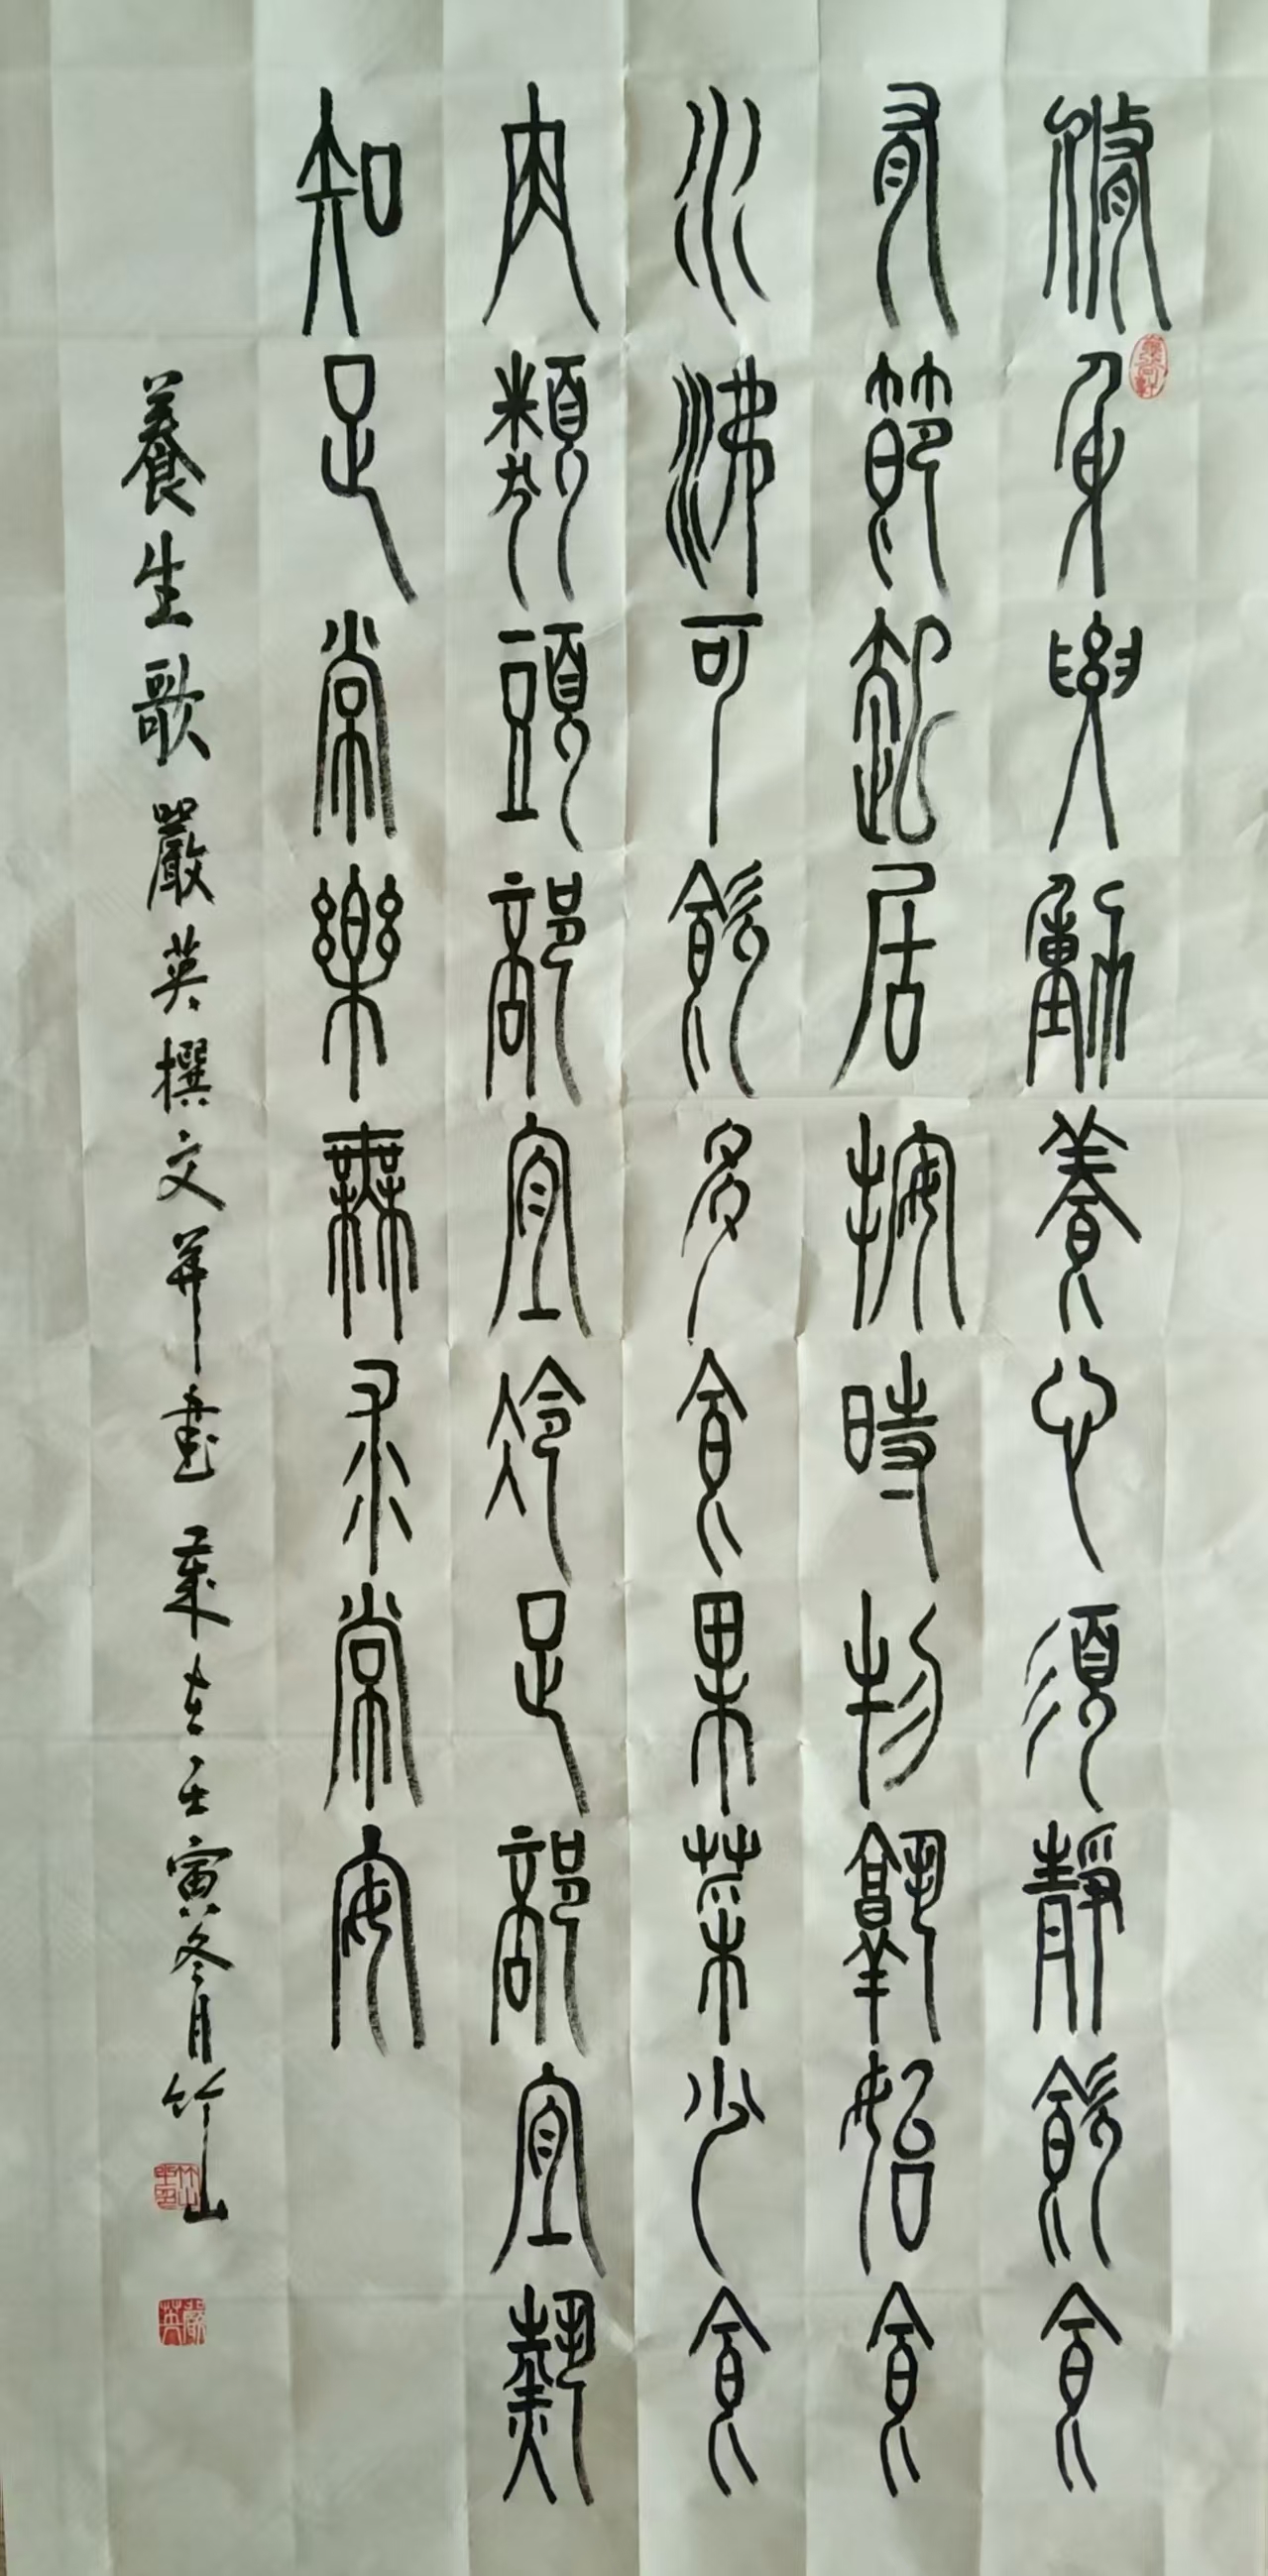 脩身要動養心須靜飲食
有節起居按時物熟始食
水沸可飲多食果菜少食
肉類頭部宜冷足部宜熱
知足常樂無求常安
養生歌 嚴英撰文并書 歲在壬寅冬月竹山
嚴英